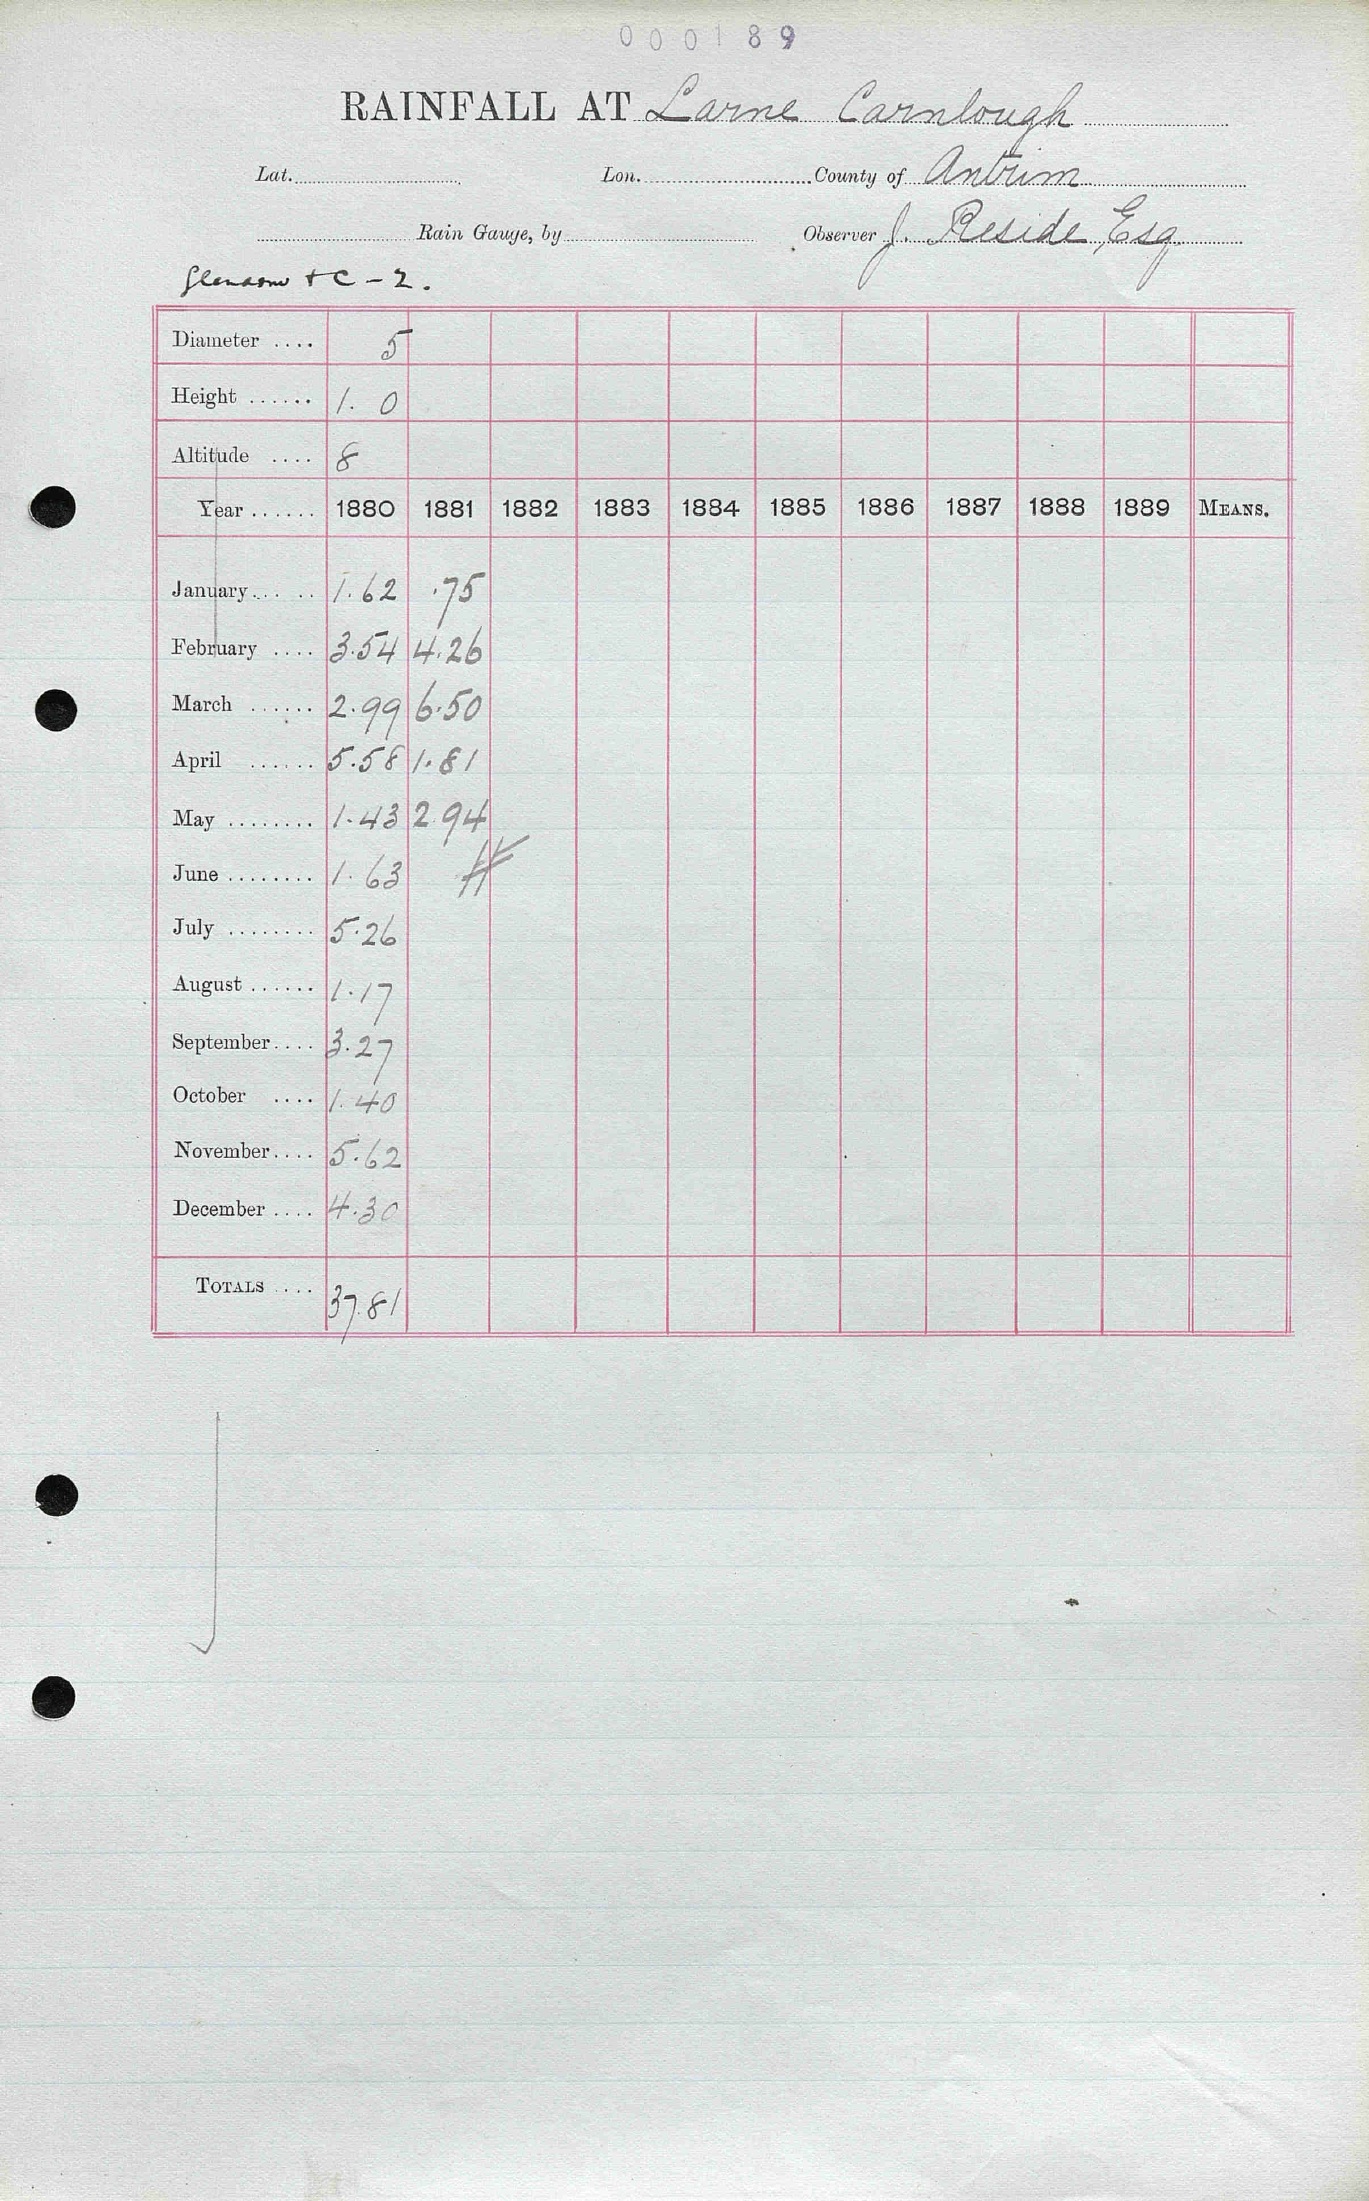 000189
RAINFALL AT Larne Carnlough
Lat. Lon. County of Antrim
Rain Gauge, by Observer J. Reside Esq
+ C - 2.
Diameter .... 5
Height ...... 1. 0
Altitude .... 8
Year ...... 1880 1881 1882 1883 1884 1885 1886 1887 1888 1889 MEANS.
January.. .. 1.62 .75
February .... 3.54 4.26
March ...... 2.99 6.50
April ...... 5.58 1.81
May ........ 1.43 2.94
June ........ 1.63
July ........ 5.26
August ...... 1.17
September.... 3.27
October .... 1.40
November.... 5.62
December .... 4.30
TOTALS .... 37.81